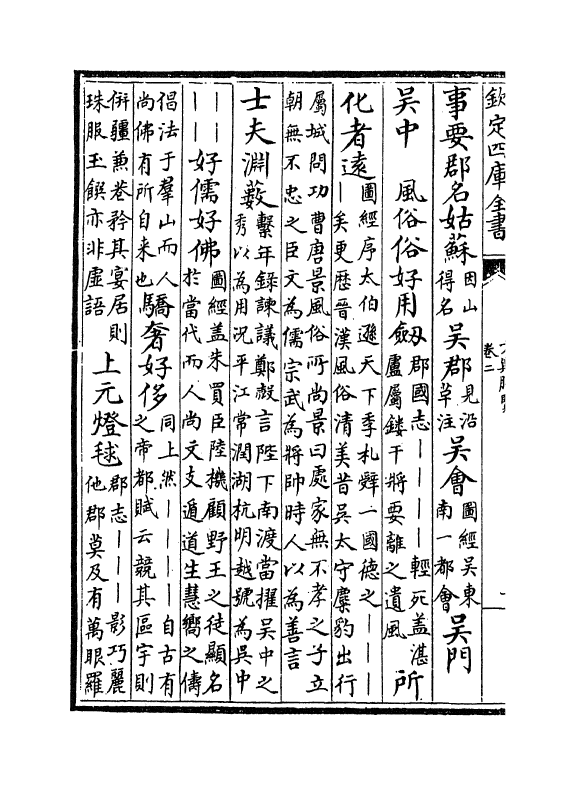 欽定四庫全書
卷二
事要郡名姑蘇因山得名吳郡見沿革注吳會圖經吳東南一都會吳門
吳中　風俗俗好用劔郡國志————輕死盖湛盧屬鏤干將要離之遺風　所
化者逺圖經序太伯遜天下季札辤一國徳之————矣更歴晉漢風俗清美昔吳太守麋豹出行
屬城問功曹唐景風俗所尚景曰處家無不孝之子立朝無不忠之臣文為儒宗武為將帥時人以為善言
士夫淵藪繫年錄諫議鄭瑴言陛下南渡當擢吳中之秀以為用况平江常潤湖杭明越號為吳中
————好儒好佛圖經盖朱買臣陸機顧野王之徒顯名於當代而人尚文支遁道生慧嚮之儔
倡法于羣山而人尚佛有所自来也驕奢好侈同上然————自古有之帝都賦云競其區宇則
倂疆兼巷矜其宴居則珠服玉饌亦非虛語　上元燈毬郡志————影巧麗他郡莫及有萬眼羅